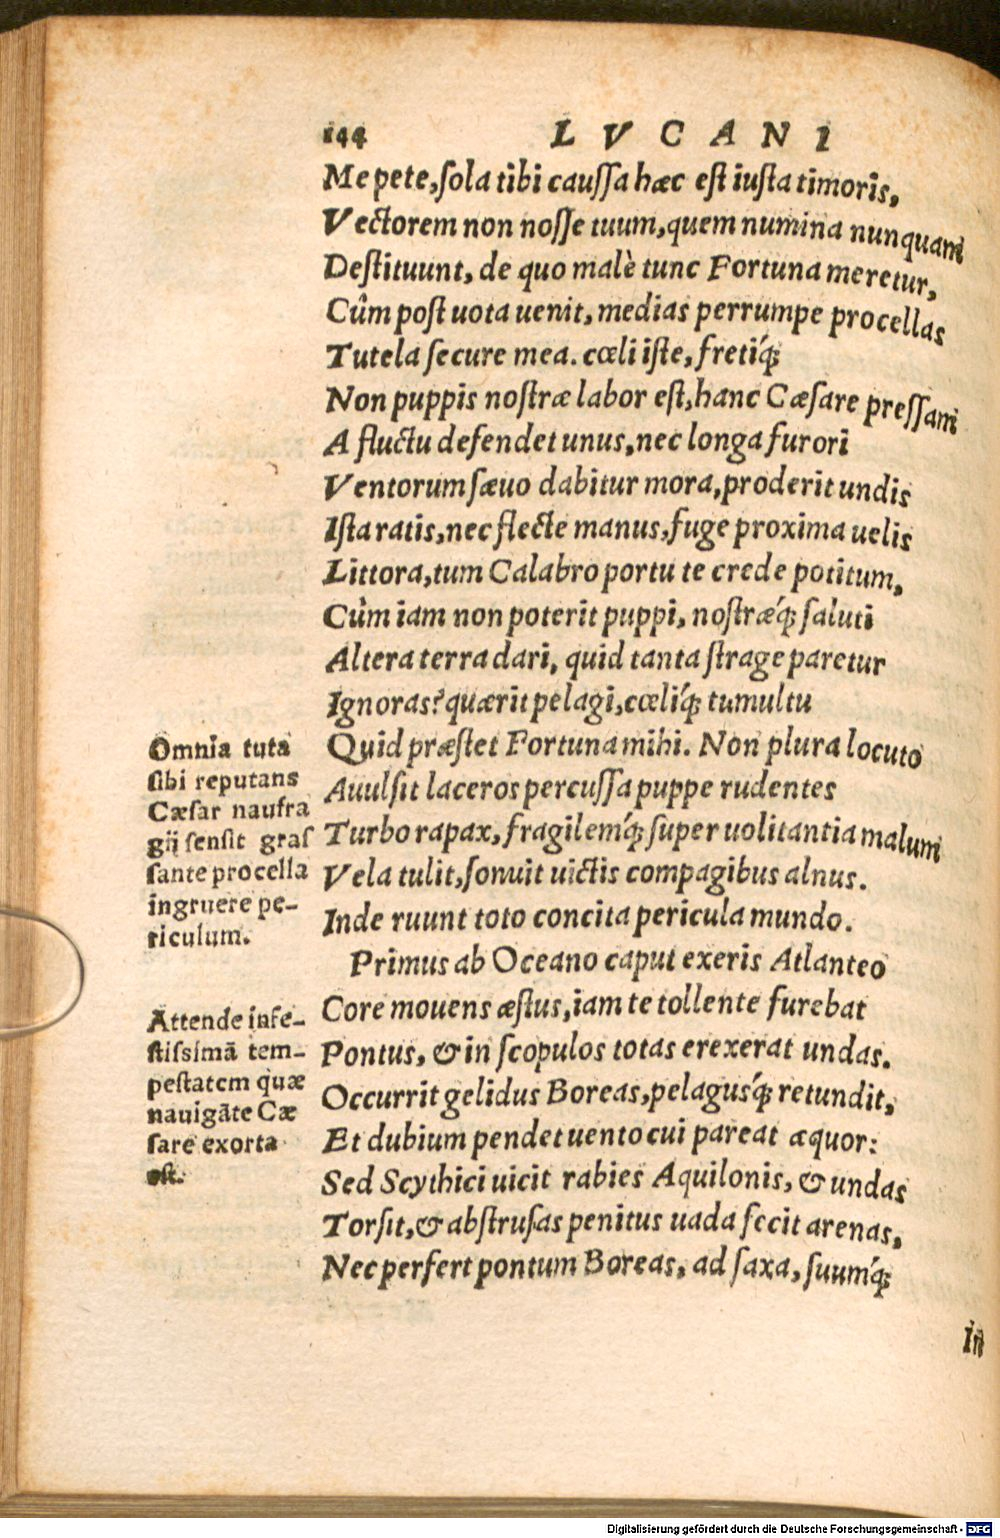 144 LVCANI
Me pete, ſola tibi cauſſa hæc eſt iuſta timoris,
Vectorem non noſſe tuum, quem numina nunquam
Deſtituunt, de quo malè tunc Fortuna meretur,
Cûm poſt uota uenit, medias perrumpe procellas
Tutela ſecure mea. cœli iſte, fretíq́;
Non puppis noſtræ labor eſt, hanc Cæſare preſſam
A fluctu defendet unus, nec longa furori
Ventorum ſæuo dabitur mora, proderit undis
Iſta ratis, nec flecte manus, fuge proxima uelis
Littora, tum Calabro portu te crede potitum,
Cûm iam non poterit puppi, noſtræq́; ſaluti
Altera terra dari, quid tanta ſtrage paretur
Ignoras? quærit pelagi, cœliq́; tumultu
Quid præſtet Fortuna mihi. Non plura locuto
Avulſit laceros percuſſa puppe rudentes
Turbo rapax, fragilemq́; ſuper uolitantia malum
Vela tulit, ſonuit uictis compagibus alnus.
Inde ruunt toto concita pericula mundo.
Primus ab Oceano caput exeris Atlanteo
Core mouens æſtus, iam te tollente furebat
Pontus, & in ſcopulos totas erexerat undas.
Occurrit gelidus Boreas, pelagusq́; retundit,
Et dubium pendet uento cui pareat æquor:
Sed Scythici uicit rabies Aquilonis, & undas
Torſit, & abſtruſas penitus uada fecit arenas,
Nec perfert pontum Boreas, ad ſaxa, ſuumq́;
In
Omnia tuta
ſibi reputans
Cæſar naufra
gij ſenſit graſ
ſante procella
ingruere pe-
riculum.
Attende infe-
ſtiſsimā tem-
peſtatem quæ
nauigāte Cæ
ſare exorta
eſt.
Digitalisierung gefördert durch die Deutsche Forschungsgemeinschaft - DFG